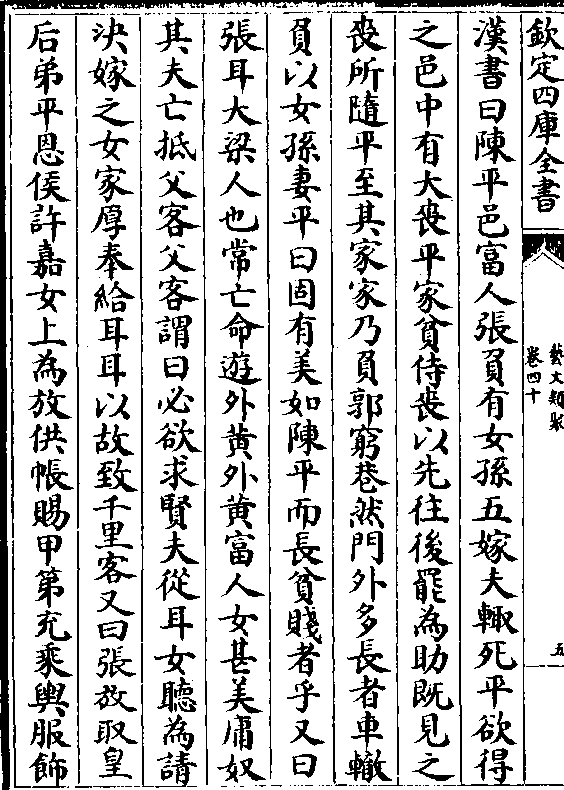 欽定四庫全書
藝文類聚
卷四十
五
漢書曰陳平邑富人張負有女孫五嫁夫輙死平欲得
之邑中有大喪平家貧侍喪以先往後罷為助既見之
喪所隨平至其家家乃負郭窮巷然門外多長者車轍
負以女孫妻平曰固有美如陳平而長貧賤者乎又曰
張耳大梁人也常亡命遊外黄外黄富人女甚美庸奴
其夫亡抵父客父客謂曰必欲求賢夫從耳女聽為請
決嫁之女家厚奉給耳耳以故致千里客又曰張放取皇
后弟平恩侯許嘉女上為放供帳賜甲第充乘輿服飾